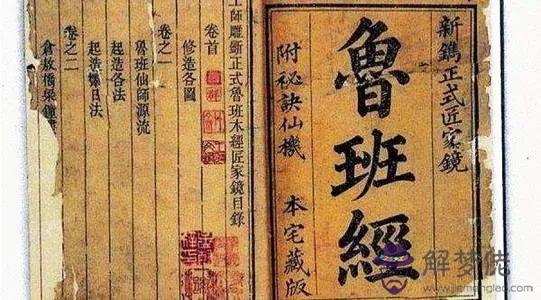 新鐫正式匠家鏡
魯班經
附祕訣仙機
本宅藏版
師雕斲正式魯班木經匠家鏡目錄
卷首
修造各圖
卷之一
魯班仙師源流
起造各法
起造日法
卷之二
倉敖橋梁鐘
解梦佬
www.jiemenglao.com